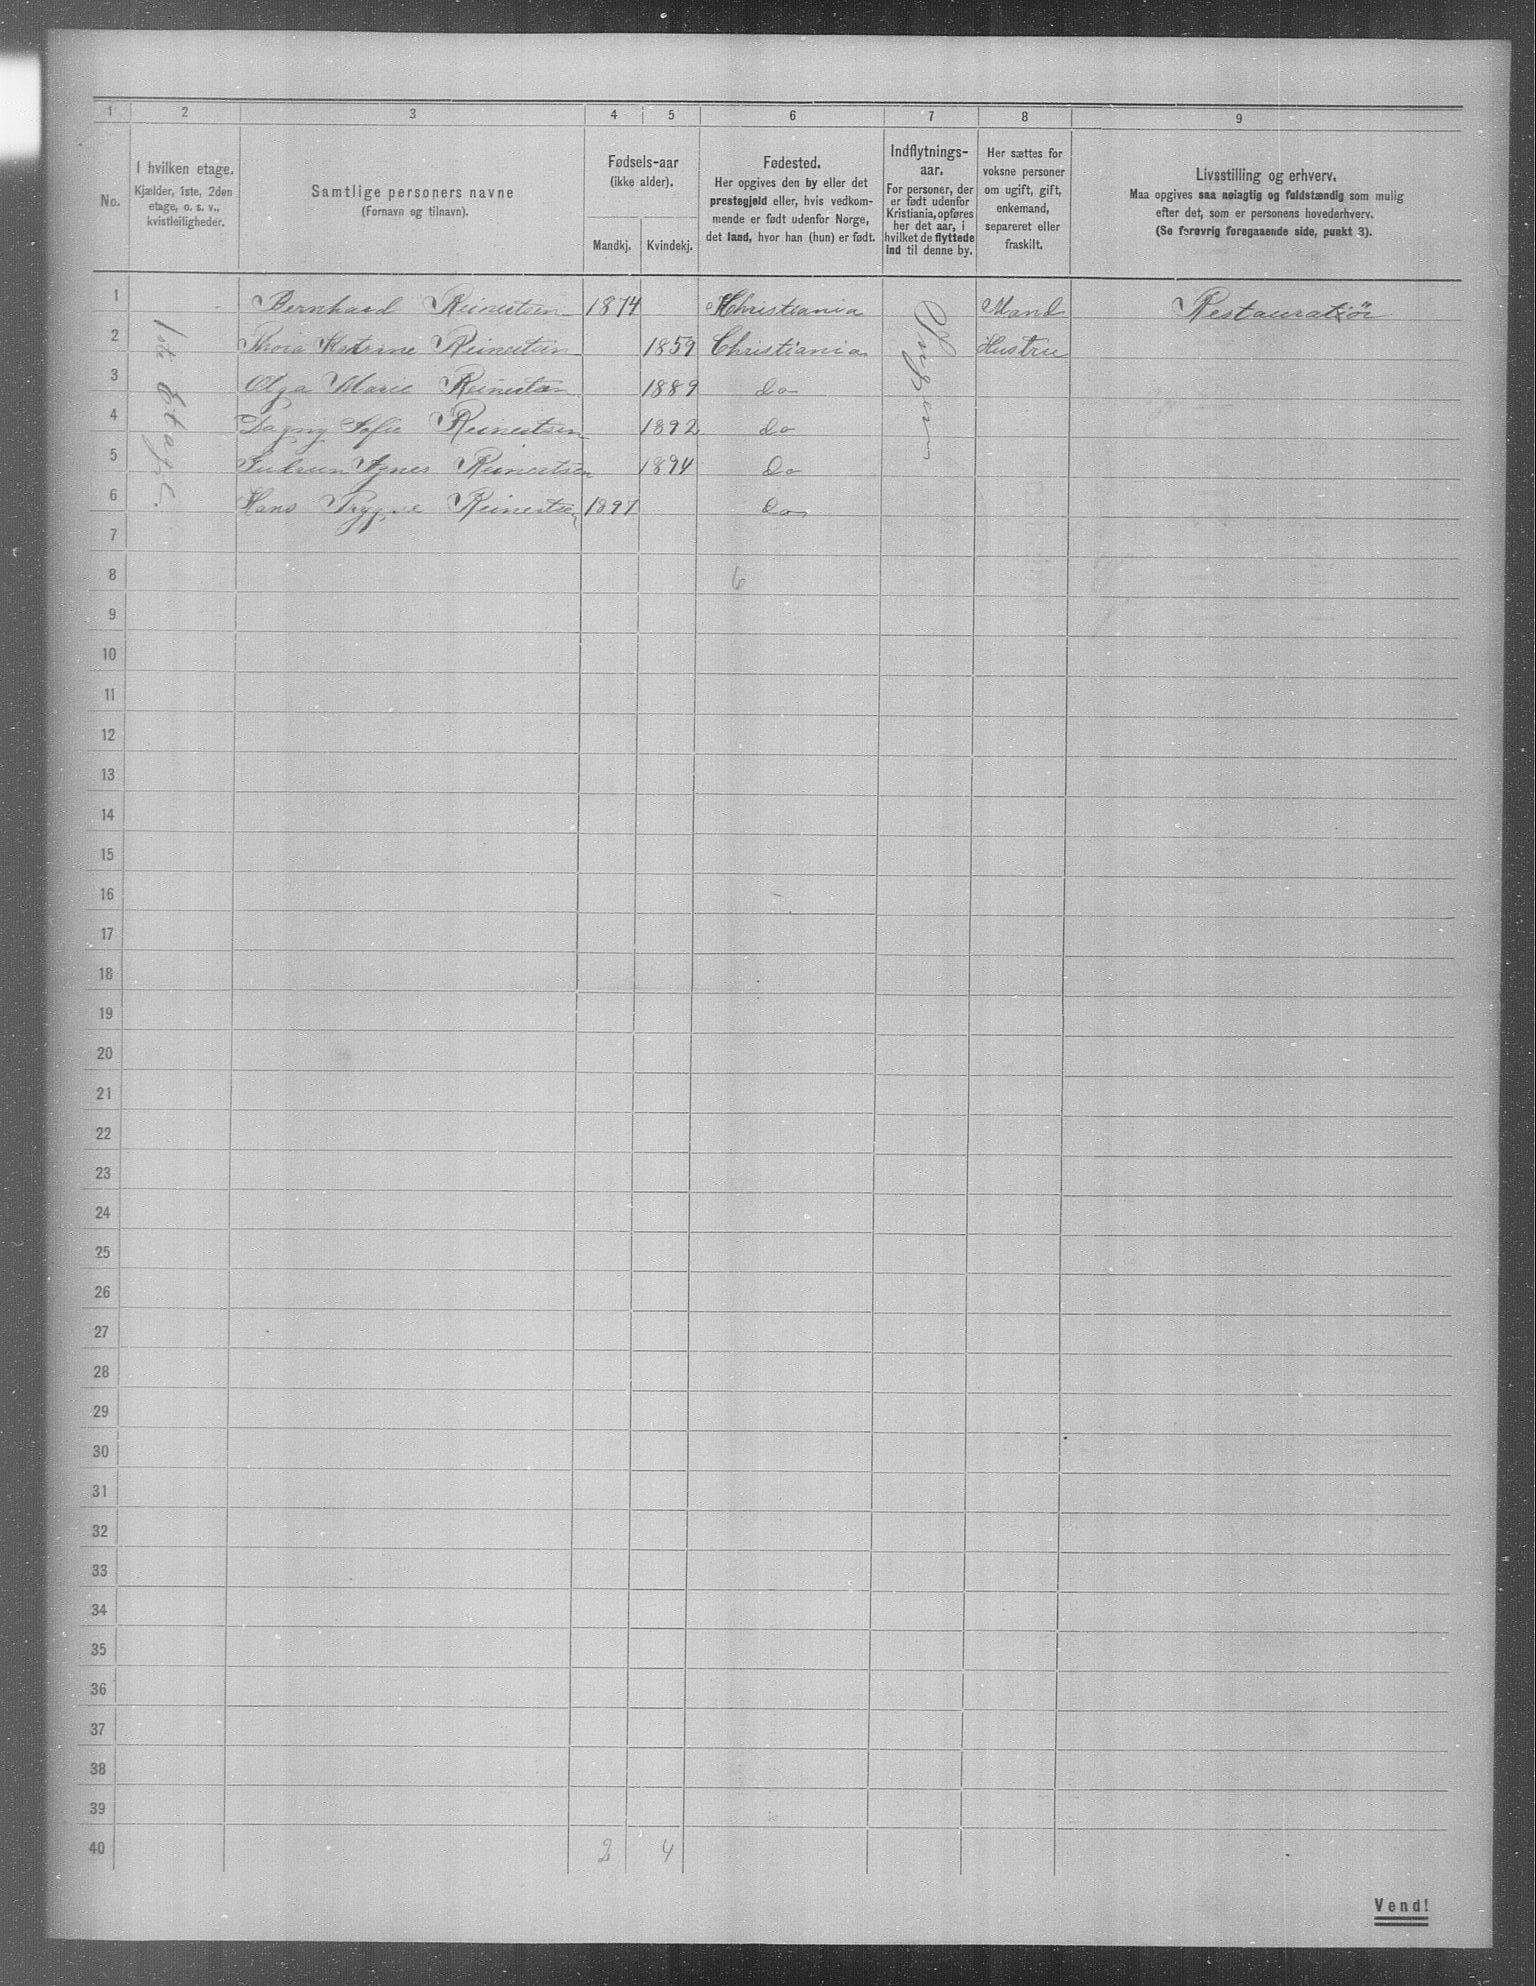 1 2 3 4 5 6 7 8 9
No.
I hvilken etage.
Kjælder, 1ste, 2den
etage, o. s. v.,
kvistleiligheder.
Samtlige personers navne
(Fornavn og tilnavn).
Fødsels-aar
(ikke alder).
Mandkj. Kvindekj.
Fødested.
Her opgives den by eller det
prestegjeld eller, hvis vedkom-
mende er født udenfor Norge,
det land, hvor han (hun) er født.
Indflytnings-
aar.
For personer, der
er født udenfor
Kristiania, opføres
her det aar, i
hvilket de flyttede
ind til denne by.
Her sættes for
voksne personer
om ugift, gift,
enkemand,
separeret eller
fraskilt.
Livsstilling og erhverv.
Maa opgives saa nøiagtig og fuldstændig som mulig
efter det, som er personens hovederhverv.
(Se forøvrig foregaaende side, punkt 3).
1ste Etage.
1 Bernhard Reinertsen 1874 Christiania Mand Restauratiør
2 Thora Katrine Reinertsen 1859 Christiania Hustru
3 Olga Marie Reinertsen 1889 do
4 Dagny Sofie Reinertsen 1892 do
5 Gudrun Agnes Reinertsen 1894 do
6 Hans Trygve Reinertsen 1897 do
7
8 6
9
10
11
12
13
14
15
16
17
18
19
20
21
22
23
24
25
26
27
28
29
30
31
32
33
34
35
36
37
38
39
40 2 4
Vend!